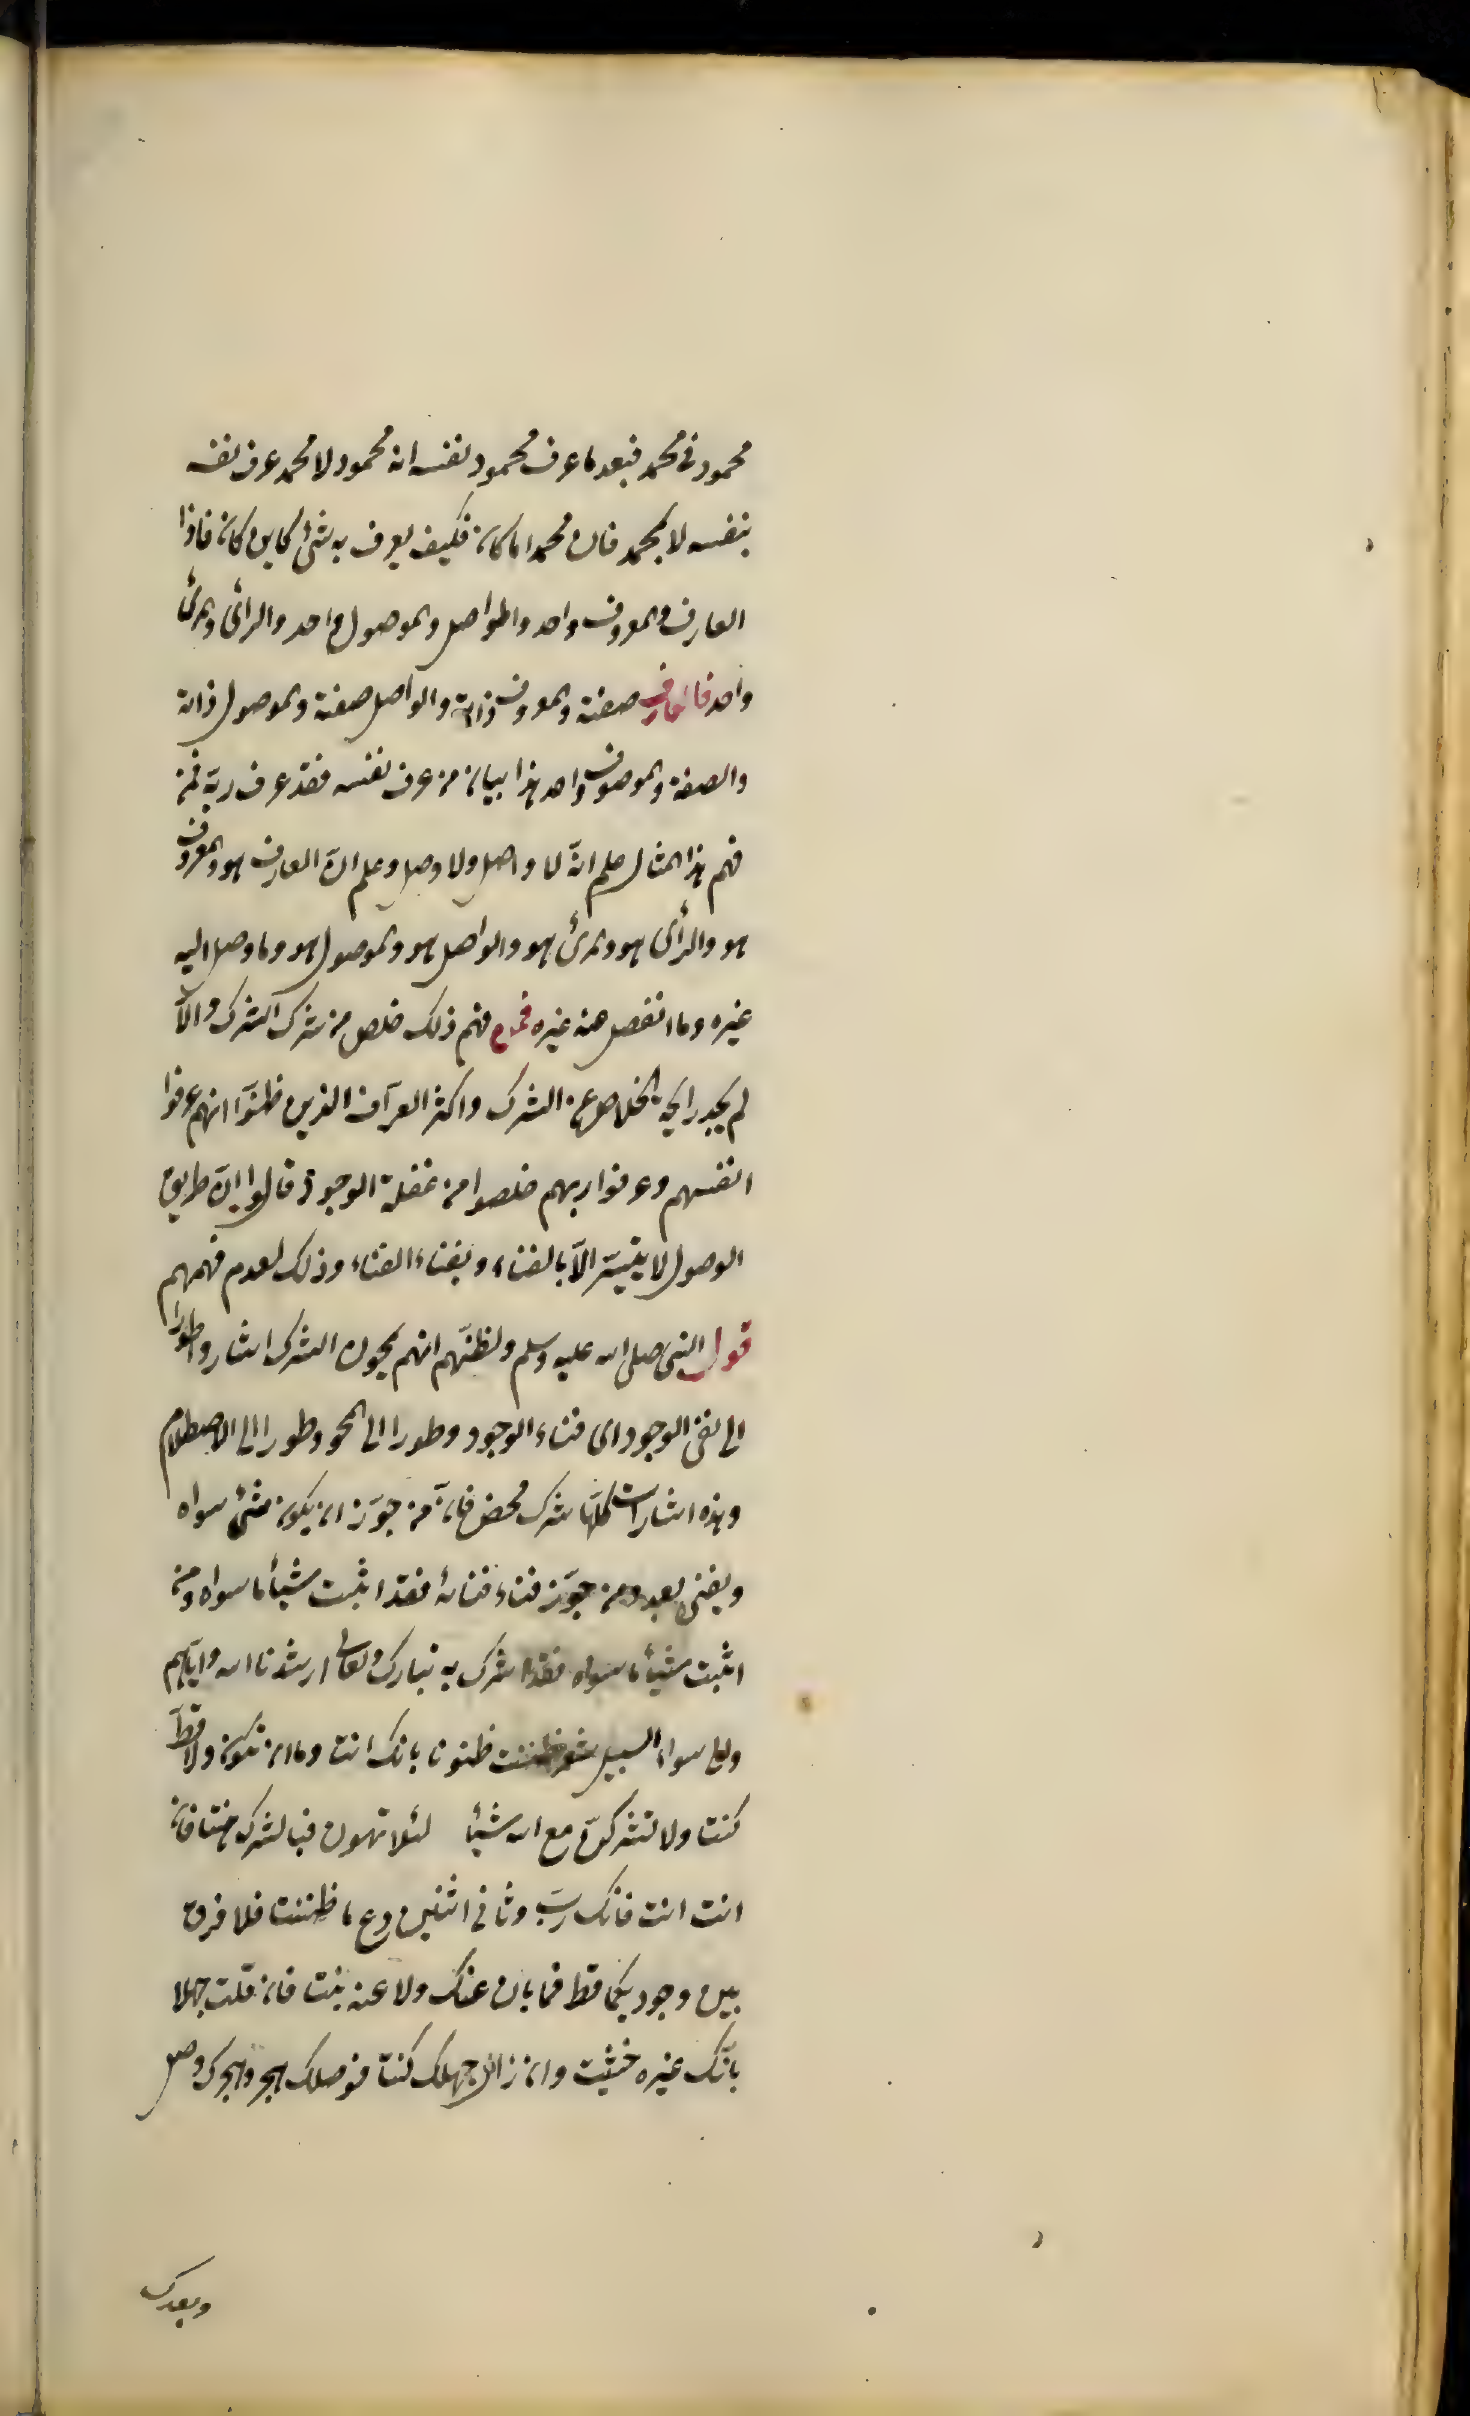 محمود فى محمد فبعد ما عرف محمود نفسه انه محمود لا محمد عرف نفسه
بنفسه لا بمحمد فان محمدا ما كان فكيف يعرف به شئ كاين كان فاذا
العارف والمعروف واحد والواصل والموصول واحد والرائى والمرئى
واحد فالعارف صفته والمعروف ذاته والواصل صفته والموصول ذاته
والصفة والموصوف واحد هذا بيان من عرف نفسه فقد عرف ربه فمن
فهم هذا المثال علم انه لا واصل ولا وصل وعلم ان العارف هو والمعروف
هو والرأى هو والمرئ هو والواصل هو والموصول هو وما وصل اليه
غيره وما انفصل عنه غيره فمن فهم ذلك خلص من شرك الشرك والا
لم يجد رايحة الخلاص عن الشرك واكثر العرآف الذين ظنوا انهم عرفوا
انفسهم وعرفوا ربهم خلصوا من غفلة الوجود قالوا ان طريق
الوصول لا يتيسر الا بالفناء وبفناء الفناء وذلك لعدم فهمهم
قول النبى صلى الله عليه وسلم ولظنهم انهم يمحون الشرك اشاروا طورا
الى نفى الوجود اى فناء الوجود وطورا الى المحو وطورا الى الاصطلام
وهذه اشارات كلها شرك محض فان من جوز ان يكون شئ سواه
ويفنى بعده ومن جوز فناء فنائه فقد اثبت شيأ ما سواه ومن
اثبت شيأ ما سواه فقد اشرك به تبارك وتعالى ارشدنا الله واياهم
والى سواء السبيل شعر ظننت ظنونا بانك انت وما ان تكون ولا قط
كنت ولا تشركن مع الله شيأ لئلا تهون فبالشرك هنتا فان
انت انت فانك رب وثانى اثنين دع ما ظننت فلا فرق
بين وجوديكما قط فما بان عنك ولا عنه بنت فان قلت جهلا
بانك غيره خشيت وان زال جهلك كنت فوصلك هجر وهجرك وصل
وبعدك